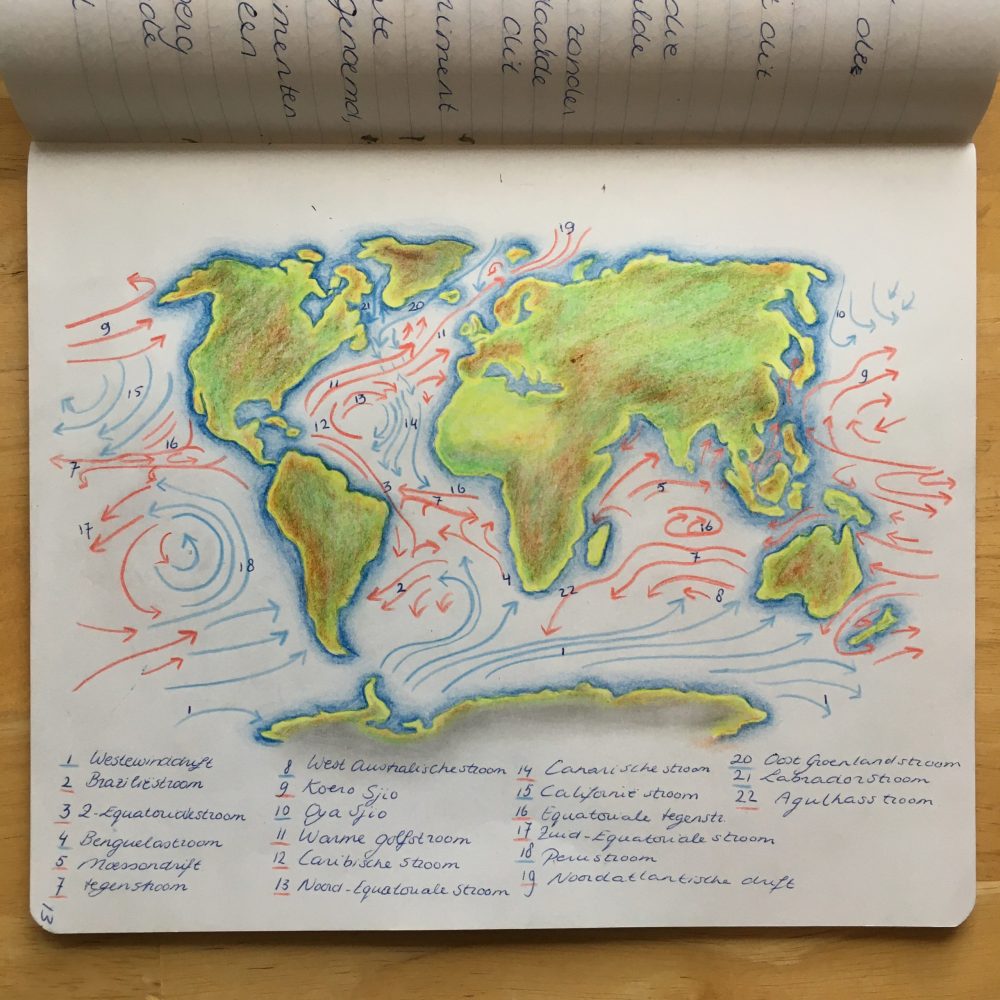 dee
t dit
due
ulde
zonder
laatste
dit
uniment
nte
genoemd,
imenten
een
perg
de
19
9
21
20
10
11
15
11
13
9
12
14
16
7
3
16
7
5
17
16
18
7
2
4
22
8
1
1
1
1 Westewinddrift
2 Braziliëstroom
3 Z-Equatorialestroom
4 Benguelastroom
5 Moessondrift
7 tegenstroom
8 West Australische stroom
9 Koero Sjio
10 Oya Sjio
11 Warme golfstroom
12 Caribische stroom
13 Noord-Equatoriale stroom
14 Canarische stroom
15 Californië stroom
16 Equatoriale tegenstr.
17 Zuid-Equatoriale stroom
18 Perustroom
19 Noordatlantische drift
20 Oost Groenlandstroom
21 Labradorstroom
22 Agulhasstroom
13